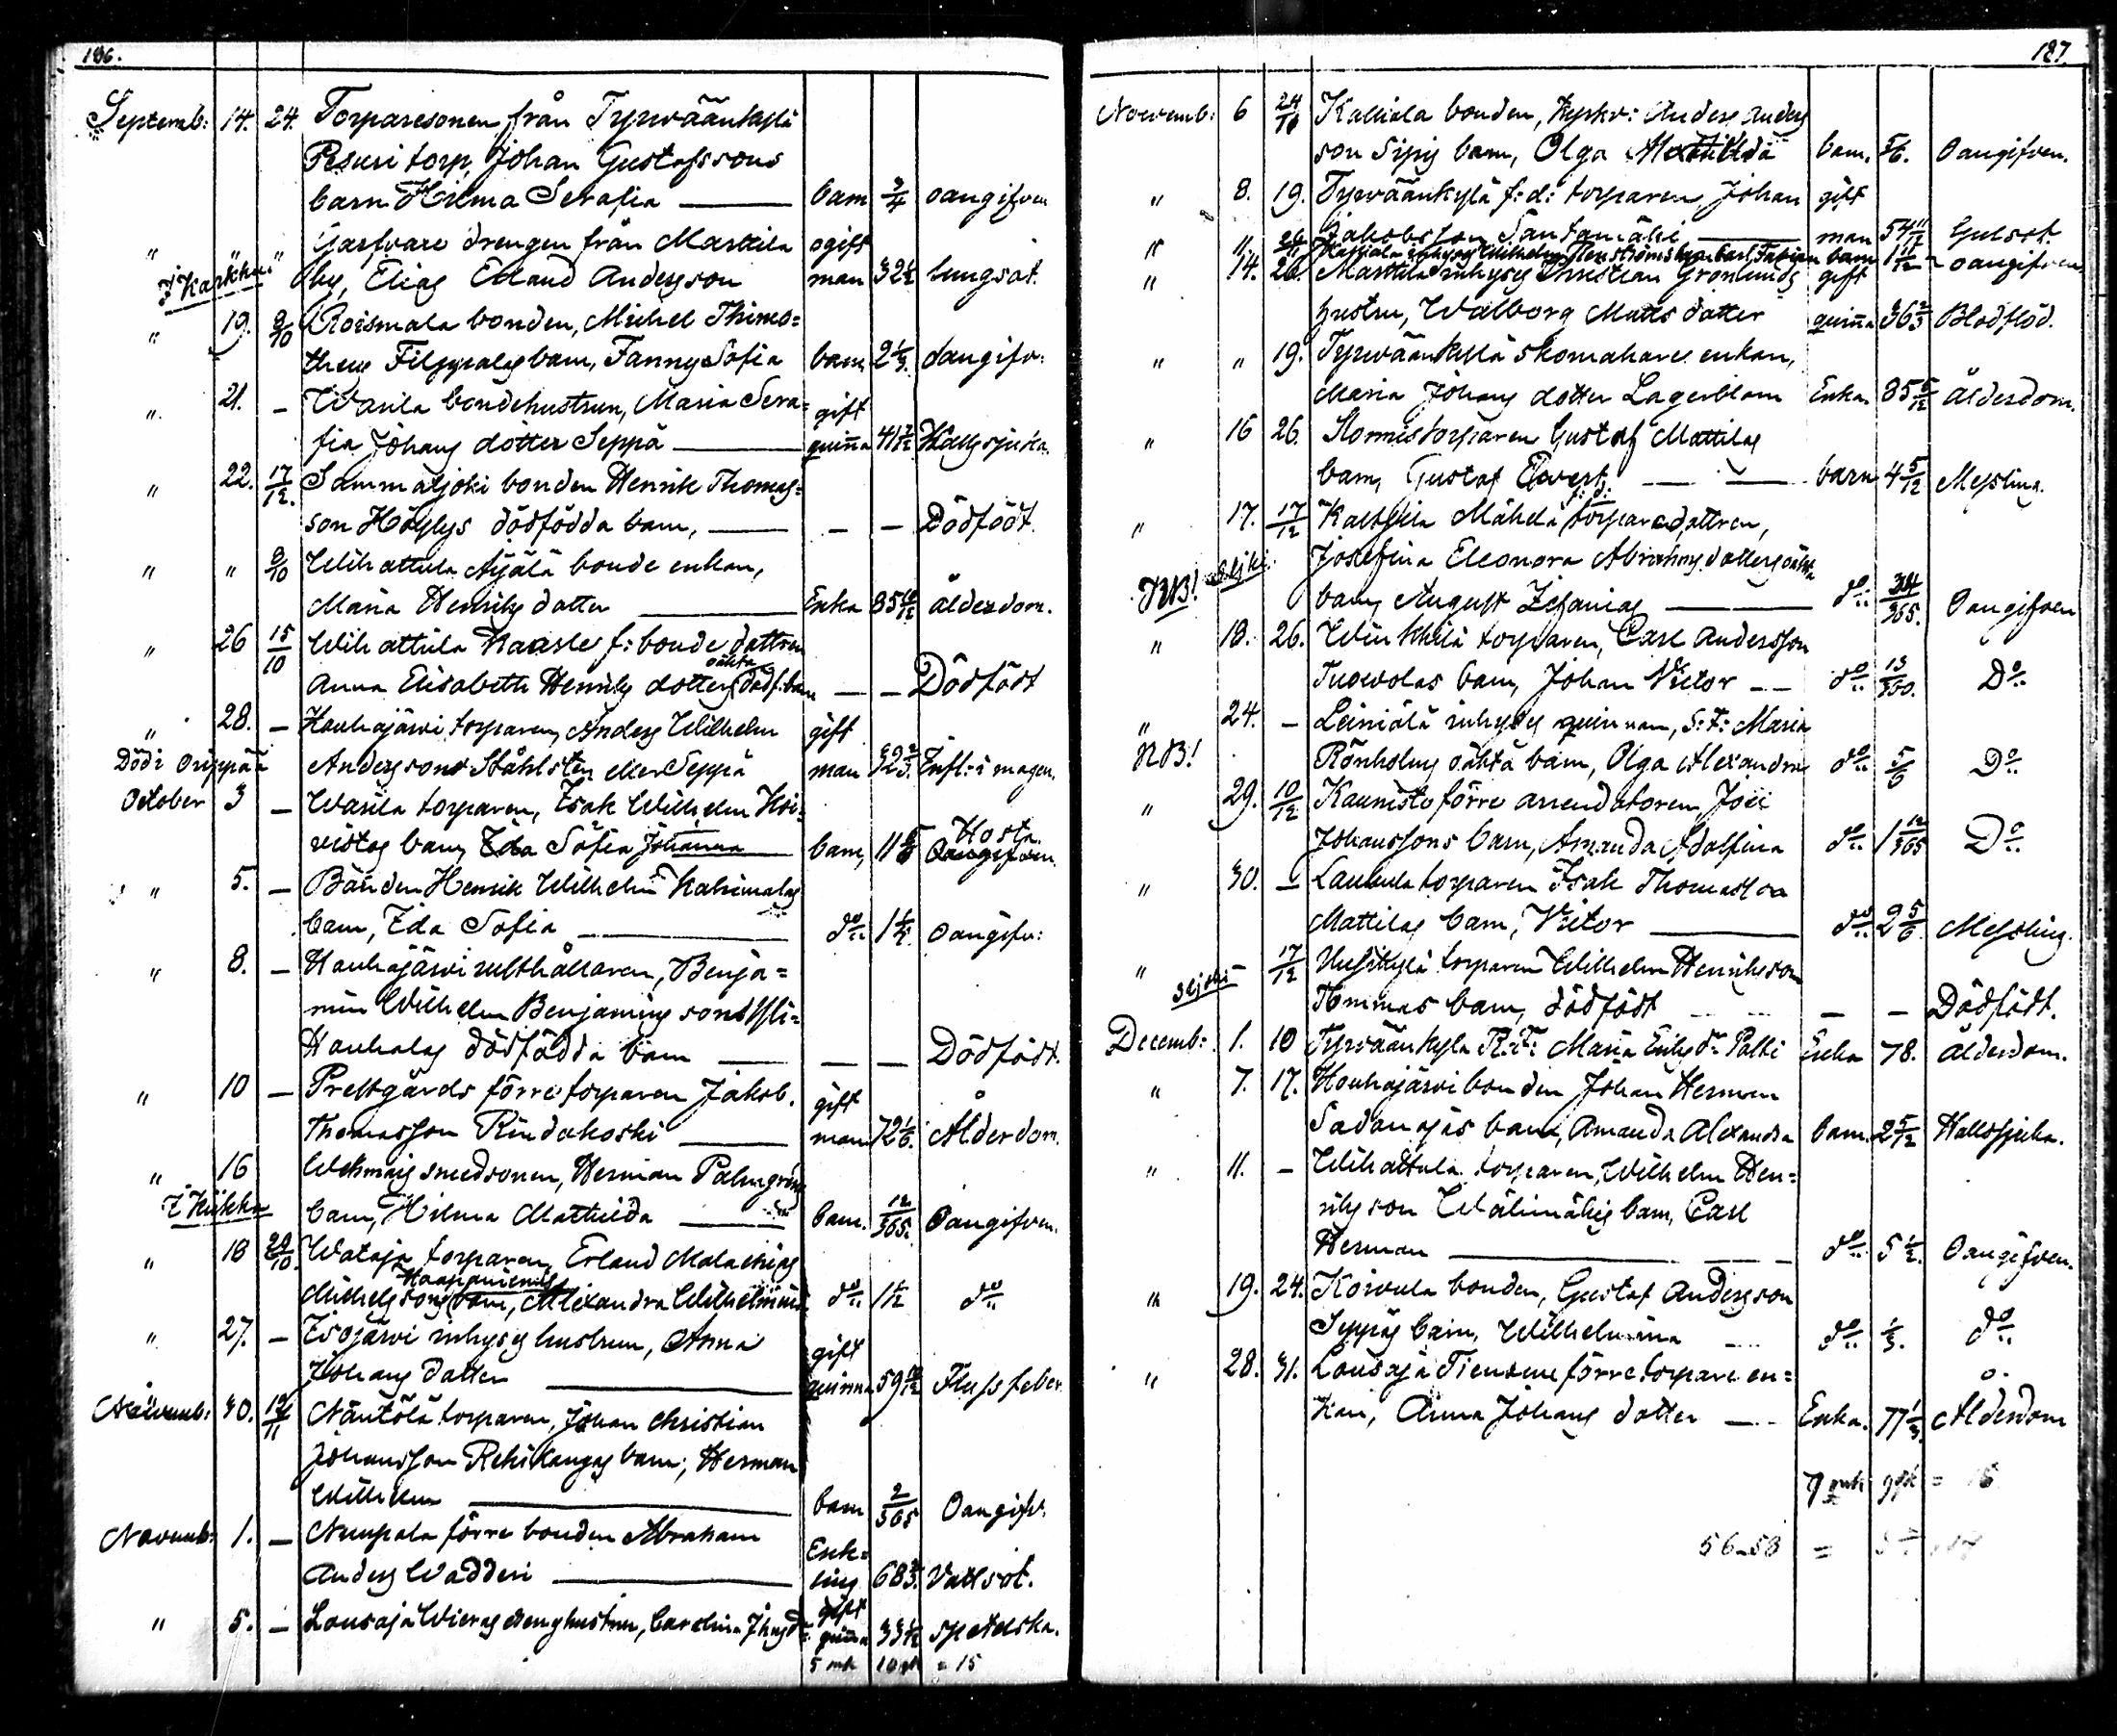 186.
Septemb: 14. 24. Torparesonen från Tyrwäänkylä
Pesuri torp, Johan Gustafssons
barn Hilma Serafia — barn 3/4 oangifven
" " " Garfvare drengen från Marttila ogift
I Karkku by, Elias Erland Andersson man 32 1/2 lungsot.
" 19. 9/10 Roismala bonden, Michel Thimo=
theus Filppulas barn, Fanny Sofia barn 2 1/3. oangifv:
" 21. – Warila bondehustrun, Maria Sera= gift
fia Johans dotter Seppä — quinna 41 7/12 Hallssjuka.
" 22. 17/12. Sammaljoki bonden Henrik Thomas=
son Höylys dödfödda barn, — – – Dödfödt.
" " 9/10 Wihattula Äijälä bonde enkan,
Maria Henriks dotter — Enka 85 10/12 ålderdom.
" 26 15/10 Wihattula Naarle f: bonde dottren
Anna Elisabeth Henriks dotters oäkta dödf: barn — – Dödfödt
" 28. – Houhajärwi torparen, Anders Wilhelm gift
Död i Orippää Anderssons Ståhlsten eller Seppä man 52 2/3. Infl: i magen.
October 3 – Warila torparen, Isak Wilhelm Koi=
vistos barn, Ida Sofia Johanna barn, 11/ Hosta.
" 5. – Bonden Henrik Wilhelm Kalimalas
barn, Ida Sofia — do 1 1/4. oangifv:
" 8. – Houhajärwi rusthållaren, Benja=
min Wilhelm Benjamins sons Yli=
Houhalas dödfödda barn — — — Dödfödt.
" 10 – Prestgårds förre torparen Jakob. gift
Thomasson Rindakoski — man 72 1/6. Ålderdom.
" 16 Wehmais smedsonen, Herman Palmgréns
I Kiikka barn, Hilma Mathilda — barn. 12/365. Oangifven.
" 18 29/10. Wataja torparen, Erland Malachias
Michelssons Haapaniemis barn, Alexandra Wilhelmina do 1 1/12 do
" 27. – Isojärwi inhyses hustrun, Anna gift
Johans dotter — quinna 59 10/12 Flussfeber
Novemb: 30. 12/11 Näntölä torparen, Johan Christian
Johansson Rekikangas barn, Herman
Wilhelm — barn 2/365 Oangifv.
Novemb: 1. – Nuupala förre bonden Abraham Enk=
Anders Wädderi — ling 68 3/4. Vattsot.
" 5. – Lousaja Wieras drenghustrun, Carolina Johans dr gift quinna 33 1/12 Spetelska.
5 mk 10 qk = 15
187
Novemb: 6 24/11 Kaliala bonden, Kyrkv: Anders Anders
son Sipis barn, Olga Matilda barn. 5/6. Oangifven.
" 8. 19. Tyrwäänkylä f: d: torparen, Johan gift
Jakobsson Santamäki — man 54 11/12 Gulsot.
" 11. 24/11 Kaliala inhyses Wilhelm Stenströms barn Karl Fabian barn 1 1/12 oangifven
" 14. 26. Marttila inhyses Christian Grönlunds gift
hustru, Walborg Matts dotter quinna 36 2/3 Blodflöd.
" " 19. Tyrwäänkylä skomakare enkan,
Maria Johans dotter Lagerblom Enka 85 5/12 ålderdom.
" 16 26. Stormis torparen Gustaf Mattilas
barn, Gustaf Evert — barn 4 5/12 Messling.
" 17. 17/12 Kaltsila Mähelä f: d: torparedottren,
Josefina Eleonora Abrahms dotters oäkta
NB! barn, August Zefanias — do 34/365. Oangifven
" 18. 26. Win torparen, Carl Andersson
Tuowolas barn, Johan Victor – – do 13/360. Do
" 24. – Leiniälä inhyses quinnan, S: T: Maria
NB! Rönholms oäkta barn, Olga Alexandra do 5/6 Do
" 29. 10/12 Kaunisto förre arrendatoren Joël
Johanssons barn, Amanda Adolfina do 1 12/365 Do
" 30. – Laukula torparen Isak Thomasson
Mattilas barn, Victor — do 2 5/6. Messling.
" 17/12 Uusikylä torparen Wilhelm Henriksson
Tommas barn, dödfödt – – Dödfödt.
Decemb: 1. 10 Tyrwäänkylä R: T: Maria Eriks dr Palki Enka 78. Ålderdom.
" 7. 17. Houhajärwi bonden Johan Herman
Sadanojas barn, Amanda Alexandra barn. 2 5/12 Hallssjuka.
" 11. – Wihattula torparen, Wilhelm Hen=
riksson Wälimäkis barn, Carl
Herman — do 5 1/2. Oangifven.
" 19. 24. Koivula bonden, Gustaf Andersson
Seppäs barn, Wilhelmina do 1/3. do
" 28. 31. Lousaja Tiensuu förre torpare en=
kan, Anna Johans dotter — Enka. 77 1/3. Ålderdom
7 mk 9 qk = 16
56–58 =